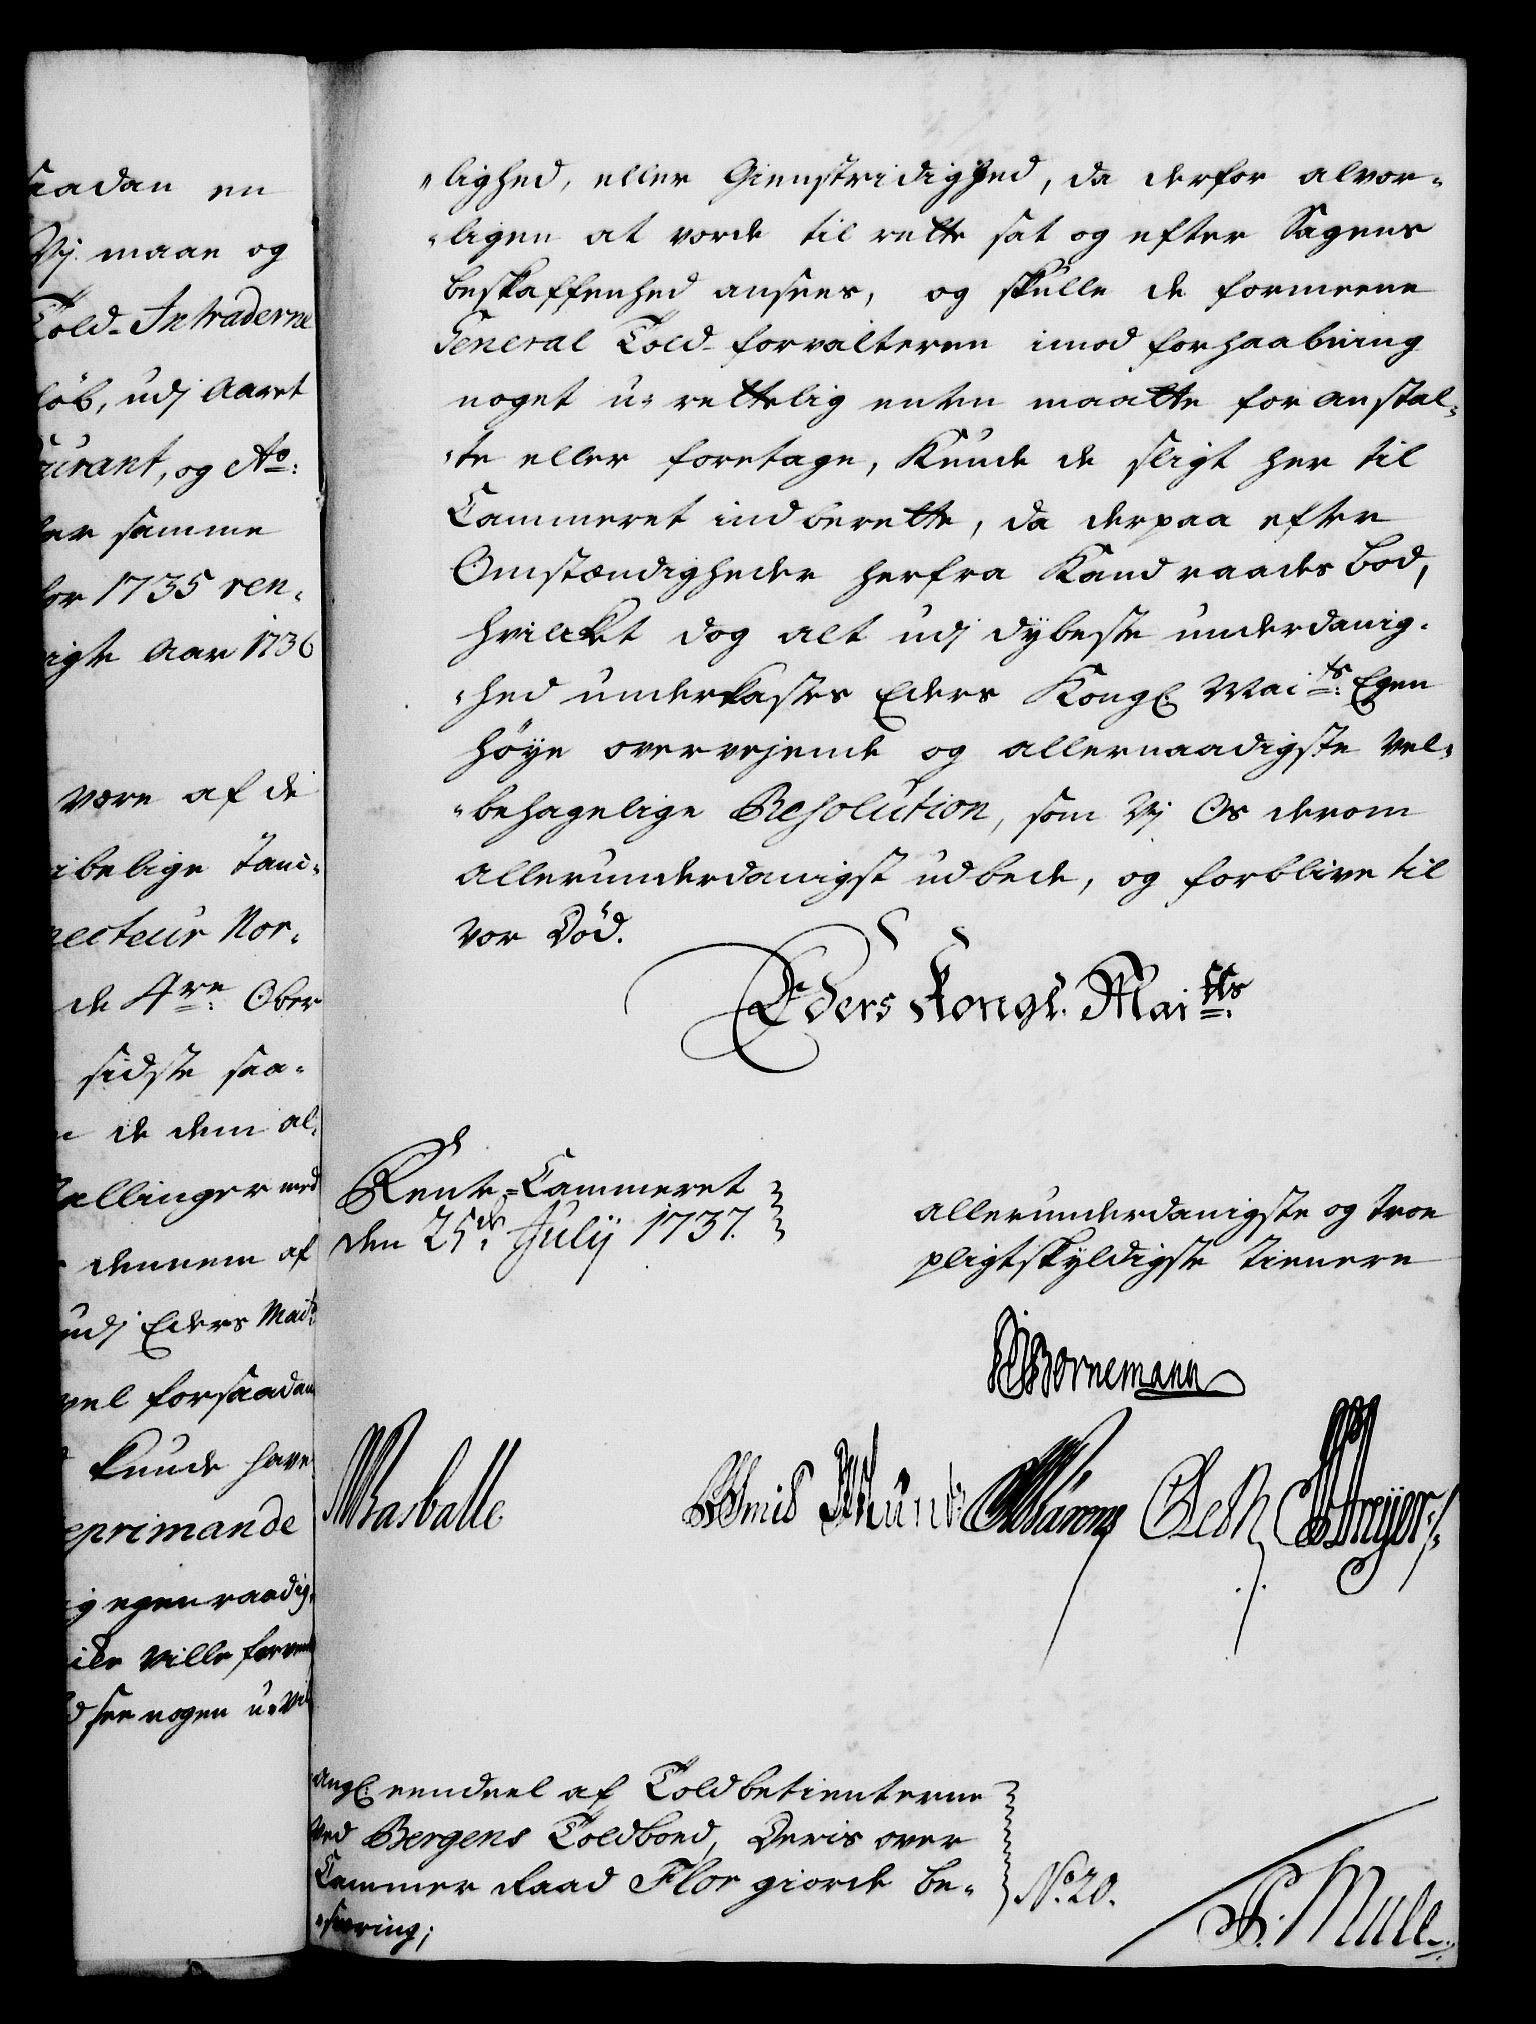 saadan en
Vj maae og
Told-Intraderne
løb, udj Aaret
Courant, og Ao:
samme
for 1735 ren-
Aar 1736
være af de
belige tani-
Nor-
de 4re: Ober
sidste saa-
de dem al-
med
dennem af
udj Eders Maits
vel forsaadan
kunde have
reprimande
egenraadig-
ville
see nogen u-vil
"lighed, eller Gienstridighed, da derfor alvor-
"ligen at vorde til rette sat og efter Sagens
beskaffenhed ansees, og skulle de formeene
General Told-forvalteren imod forhaabning
noget u-rettelig enten maatte foranstal-
"te eller foretage, kunde de sligt her til
Cammeret indberette, da derpaa efter
Omstændigheder herfra kand raades bod,
hvilcket dog alt udj dybeste underdanig-
"hed underkastes Eders Kongl: Maits: Egen
høye overvejende og allernaadigste vel-
"behagelige Resolution, som Vj Os derom
allerunderdanigst udbede, og forblive til
vor Død.
Eders Kongl. Maitts:
Rente-Cammeret
den 25de July 1737.
allerunderdanigste og troe
pligtskyldigste tienere
Bornemann
Rasballe Smid Munch
Angl: eendeel af Toldbetienterne
ved Bergens Toldboed, Deris over
Cammer Raad Flor giorde be-
"sværing;
No. 20.
Mule